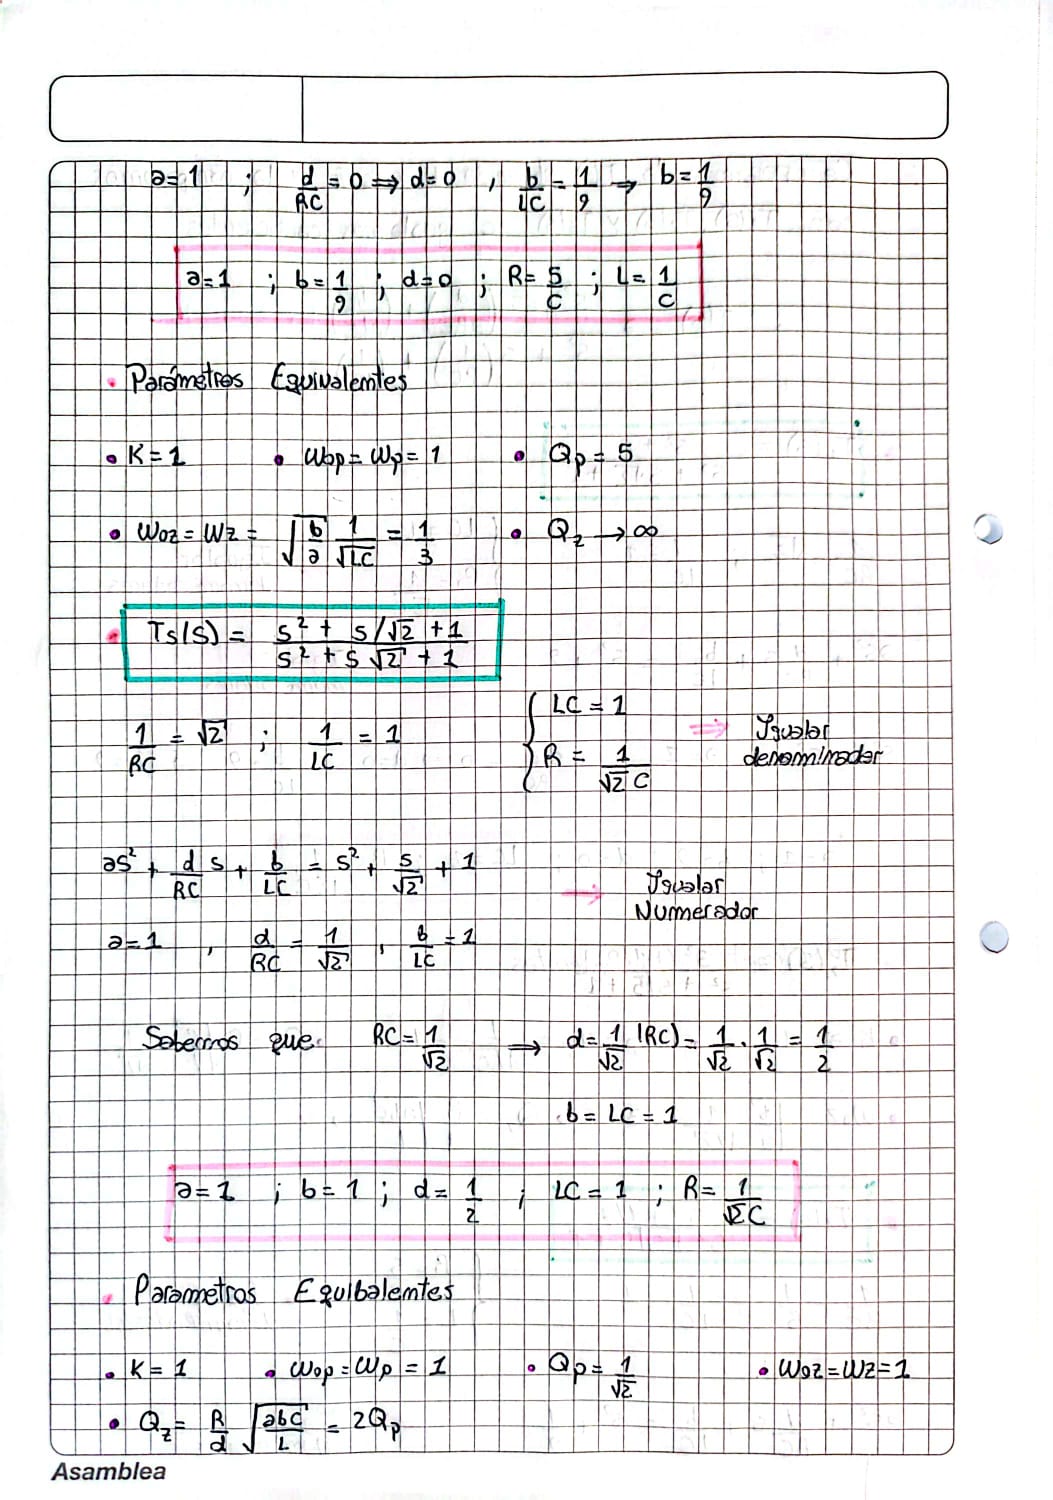 a=1 ; d/RC = 0 ⇒ d=0 , b/LC = 1/9 → b = 1/9
a=1 ; b=1/9 ; d=0 ; R=5/C ; L=1/C
• Parámetros Equivalentes
• K=1 • ωop=ωp=1 • Qp=5
• ωoz=ωz= √(b/a) 1/√LC = 1/3 • Qz→∞
• T5(S) = (s² + s/√2 + 1)/(s² + s√2 + 1)
1/RC = √2 ; 1/LC = 1 { LC = 1 R = 1/(√2 C) ⇒ Igualar denominador
as² + d/RC s + b/LC = s² + s/√2 + 1 → Igualar Numerador
a=1 , d/RC = 1/√2 , b/LC = 1
Sabemos que RC=1/√2 ⇒ d=1/√2 (RC)= 1/√2 · 1/√2 = 1/2
b = LC = 1
a=1 ; b=1 ; d=1/2 ; LC=1 ; R=1/(√2 C)
• Parametros Equibalentes
• K=1 • ωop=ωp=1 • Qp=1/√2 • ωoz=ωz=1
• Qz= R/d √(abC/L) = 2Qp
Asamblea